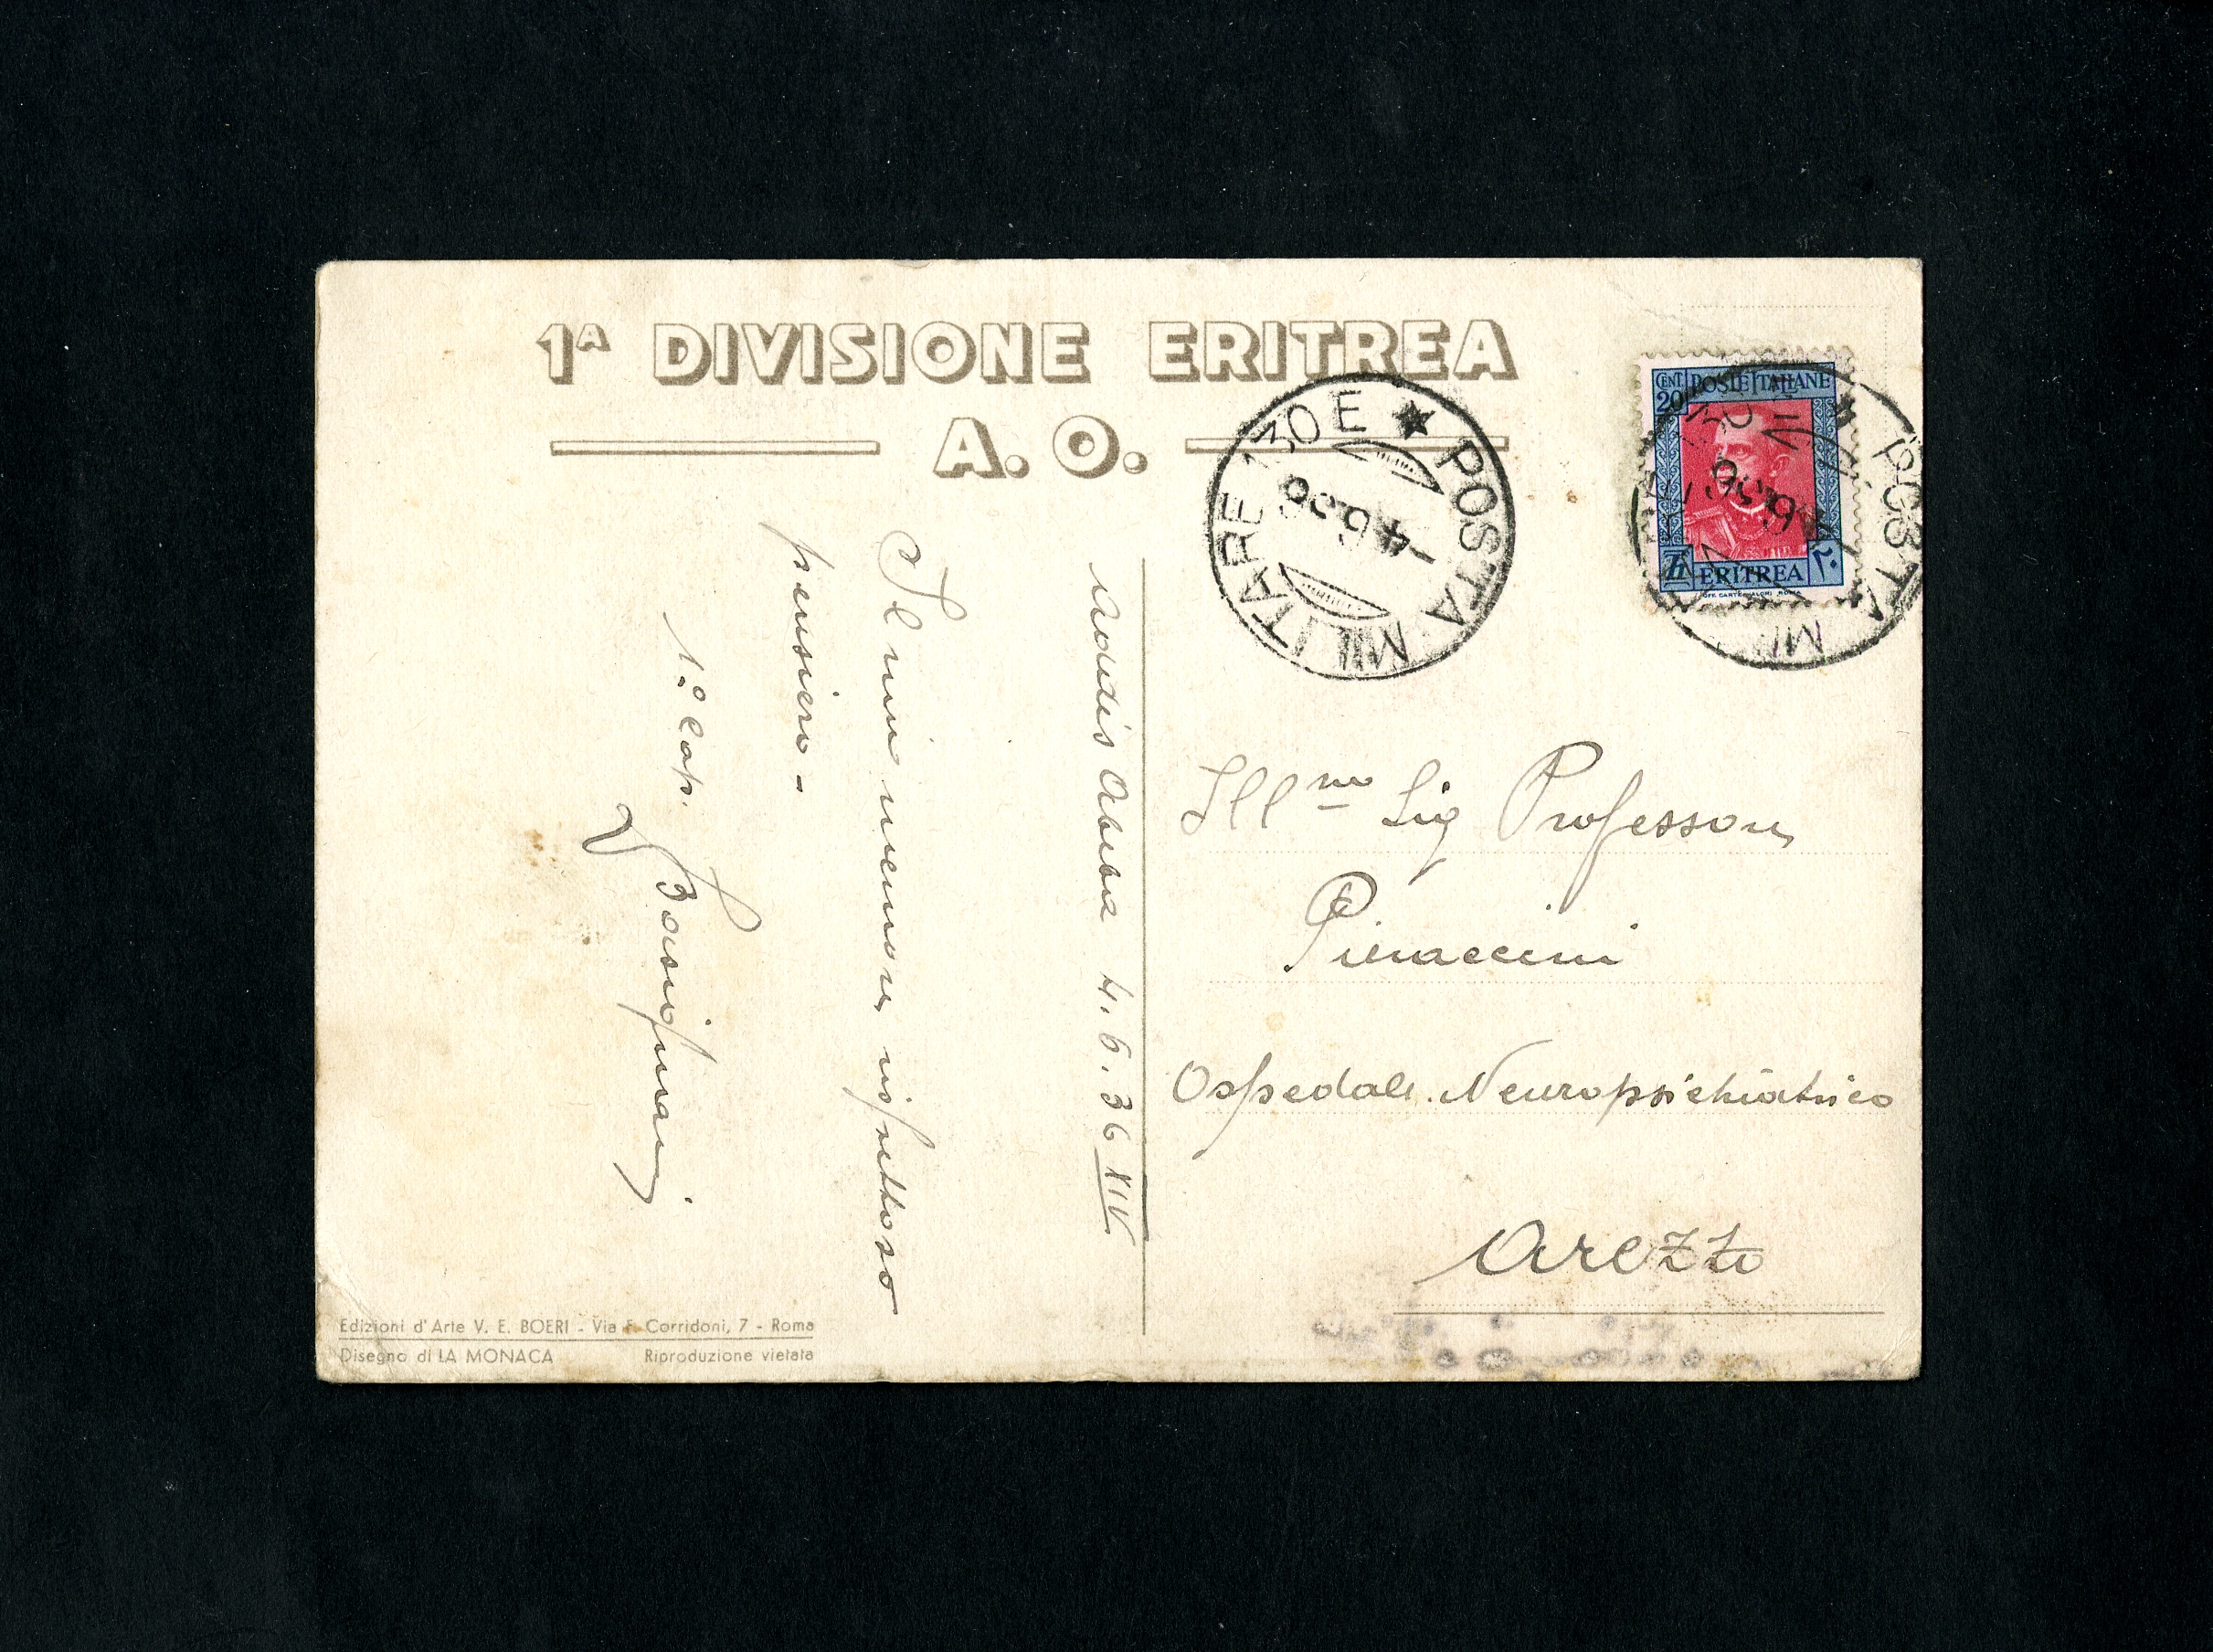 1ª DIVISIONE ERITREA
A. O.
POSTA MILITARE 130 E
-4.6.36
CENT. 20
POSTE ITALIANE
ERITREA
٢٠
POSTA MI
6.36
Addis Abeba 4.6.36 XIV
Il mio memore rispettoso
pensiero -
1.º Cap.
Ill mo Sig Professore
Pieraccini
Ospedale Neuropsichiatrico
Arezzo
Edizioni d'Arte V. E. BOERI - Via F. Corridoni, 7 - Roma
Disegno di LA MONACA Riproduzione vietata